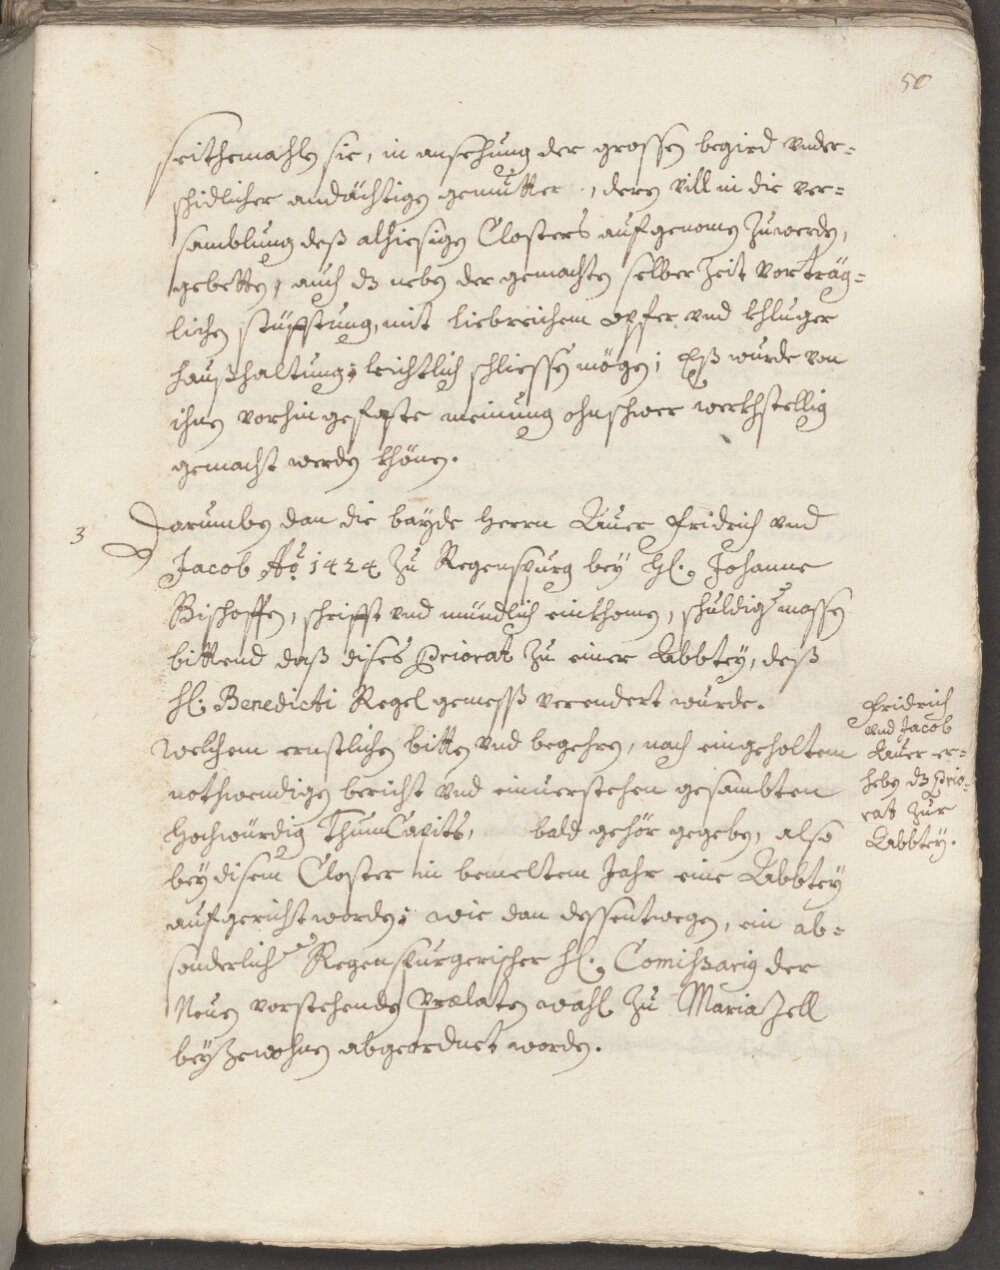 50
seithemahln sie, in ansehung der grossen begird under=
schidlicher andächtigen gemütter, deren vill in die ver=
samblung deß alhiesigen Closters aufgenomen zuwerden,
gebetten, auch dz neben der gemachten selber Zeit vorträg=
lichen stüfftung, mit liebreichem opfer und khluger
haußhaltung; leichtlich schliessen mögen; Eß wurde von
ihnen vorhin gefaste meinung ohnschwer werkhstellig
gemacht werden khönen.
3 Darumben dan die bayde Herrn Auer Fridrich und
Jacob Ao. 1424 Zu Regenspurg bey Hl. Johanne
Bischoffen, schrifft und mündlich einkhomen, schuldig massen
bittend daß dises Priorat Zu einer Abbtey, deß
Hl: Benedicti Regel gemeß verendert wurde.
Welchem ernstlichen bitten und begehren, nach eingeholtem
nothwendigen bericht und einuerstehen gesambten
Hochwürdig ThumCapits, bald gehör gegeben, also
bey disem Closter in bemeltem Jahr eine Abbtey
aufgericht worden; wie dan dessentwegen, ein ab=
sonderlich Regenspurgerischer Hl. Comihsarig der
Neuen vorstehenden Prælaten wahl Zu Maria Zell
beyzewohnen abgeordnet worden.
Fridrich
und Jacob
Auer er=
heben dz Prio=
rat Zur
Abbtey.